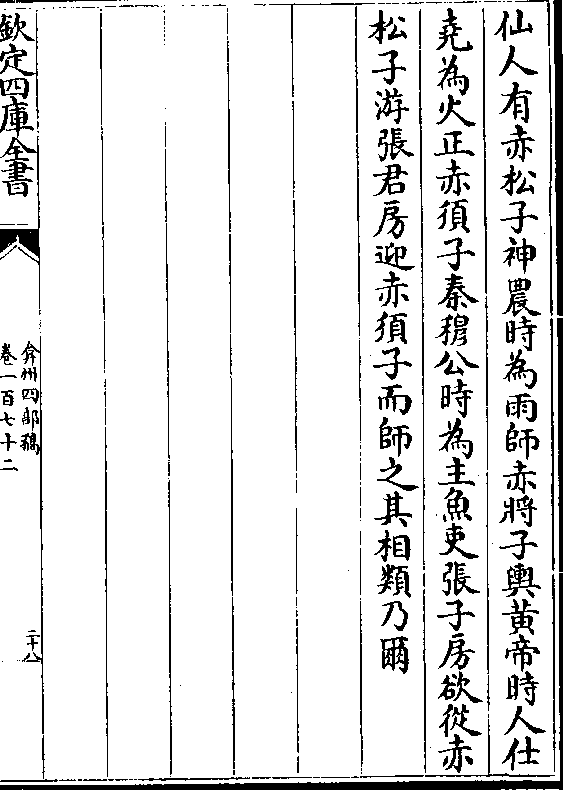 仙人有赤松子神農時為雨師赤將子輿黃帝時人仕
堯為火正赤須子秦穆公時為主魚吏張子房欲從赤
松子游張君房迎赤須子而師之其相類乃爾
欽定四庫全書
弇州四部稿
卷一百七十二
二十八